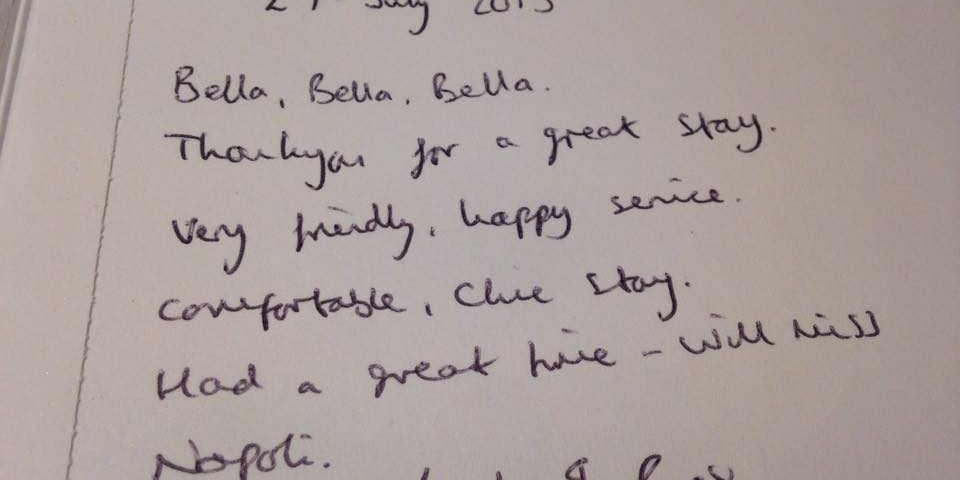 July 2015
Bella, Bella, Bella.
Thankyou for a great stay.
Very friendly, happy service.
comfortable, Chic stay.
Had a great time - will miss
Napoli.